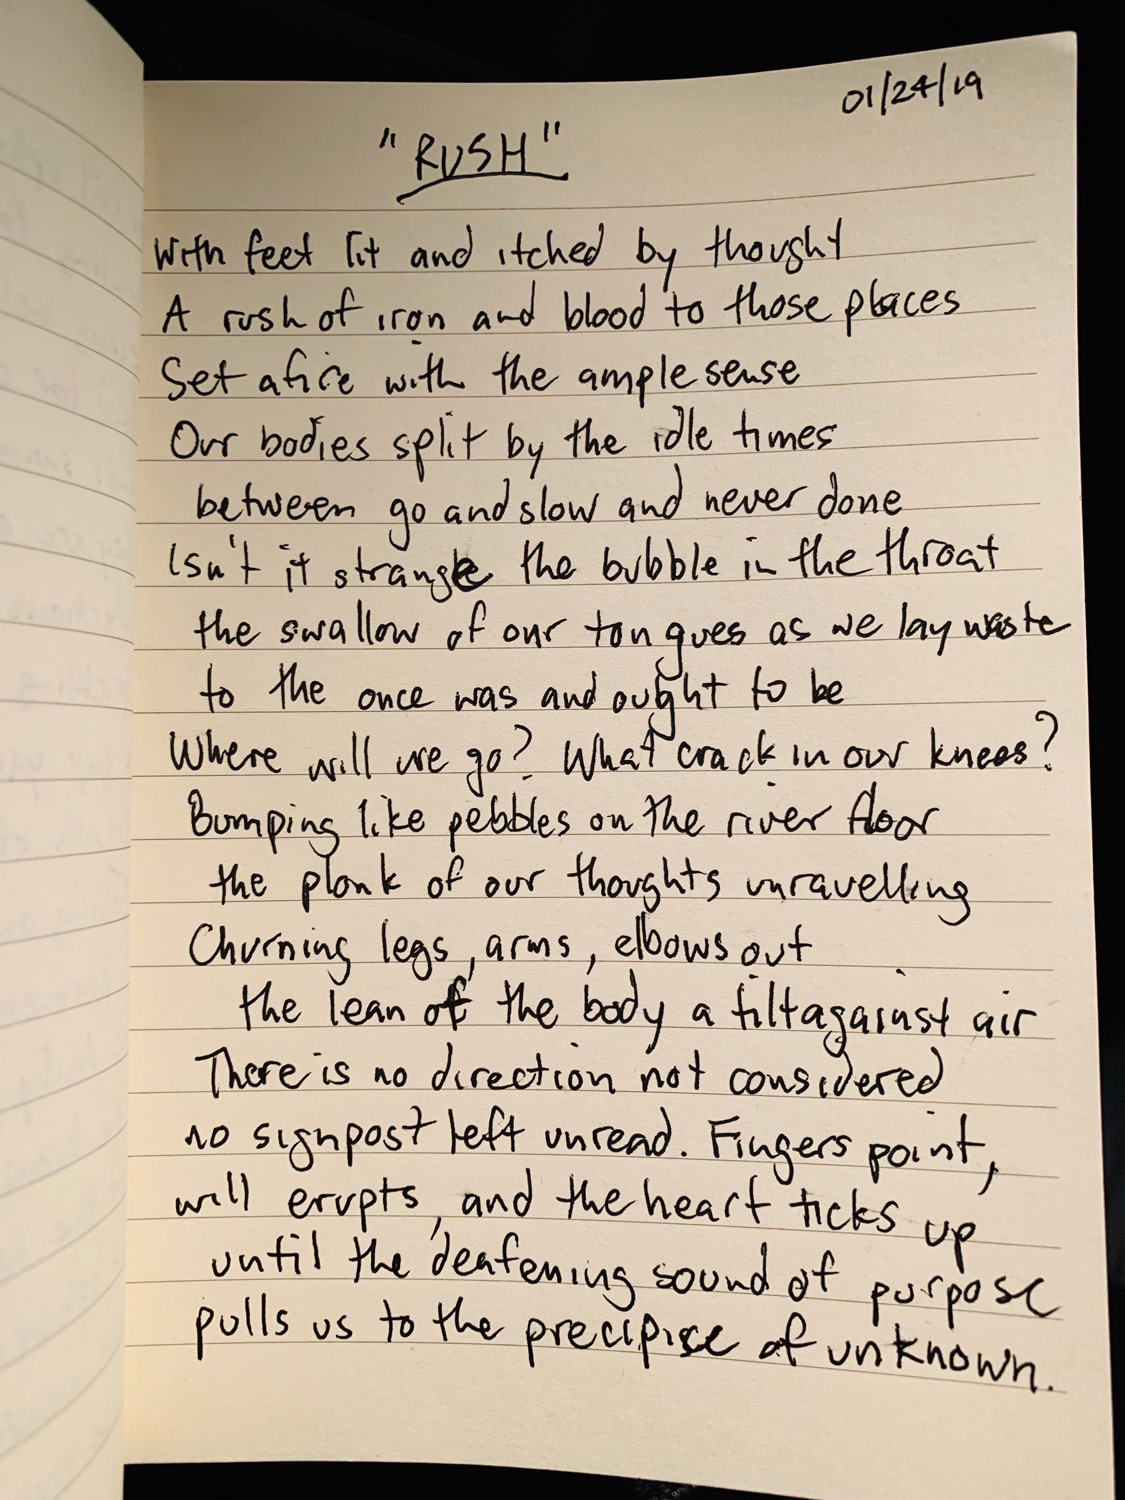 01/24/19
"RUSH"
With feet lit and itched by thought
A rush of iron and blood to those places
Set afire with the ample sense
Our bodies split by the idle times
between go and slow and never done
Isn't it strange the bubble in the throat
the swallow of our tongues as we lay waste
to the once was and ought to be
Where will we go? What crack in our knees?
Bumping like pebbles on the river floor
the plonk of our thoughts unravelling
Churning legs, arms, elbows out
the lean of the body a tilt against air
There is no direction not considered
no signpost left unread. Fingers point,
will erupts, and the heart ticks up
until the deafening sound of purpose
pulls us to the precipise of unknown.